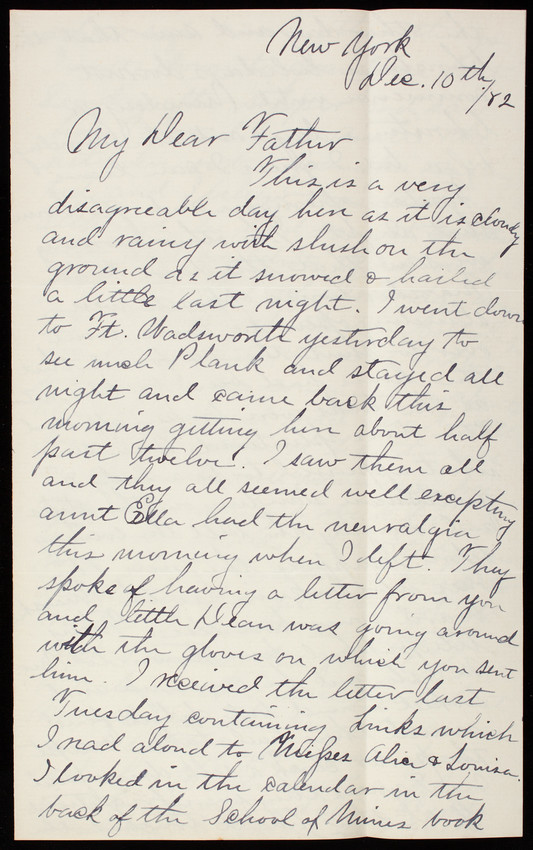 New York
Dec. 10th/82
My Dear Father
This is a very
disagreeable day here as it is cloudy
and rainy with slush on the
ground as it snowed & hailed
a little last night. I went down
to Ft. Wadsworth yesterday to
see uncle Plank and stayed all
night and came back this
morning getting here about half
past twelve. I saw them all
and they all seemed well excepting
aunt Ella had the neuralgia
this morning when I left. They
spoke of having a letter from you
and little Dean was going around
with the gloves on which you sent
him. I received the letter last
Tuesday containing Links which
I read aloud to Misses Alice & Louisa.
I looked in the calendar in the
back of the School of Mines book